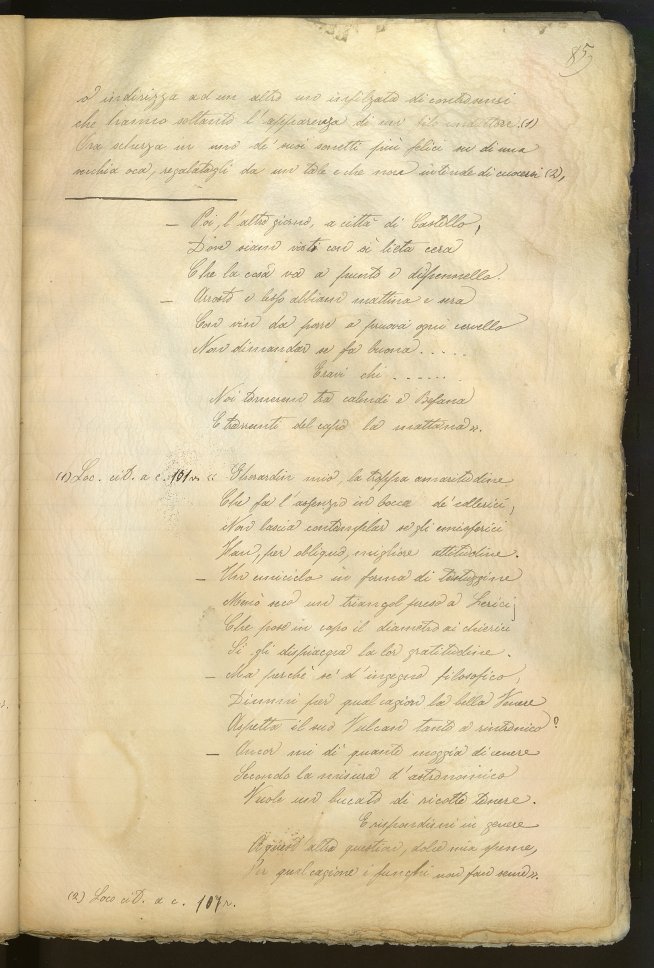 85
o indirizza ad un altro uno infilzato di controsensi
che hanno soltanto l'apparenza di un (1)
Ora scherza in uno de' suoi sonetti più felici su di una
vecchia oca, regalatagli da un tale e che non intende di cuocersi (2),
— Poi, l'altro giorno, a città di Castello,
Dove siam visti con sì lieta cera
Che la cosa va a punto e dipennello.
— Arrosto e lesso abbiam mattina e sera
Con vin da porre a pruova ogni cervello
Non dimandar se fa buona .....
Eravi chi ......
Noi torneremo tra calendi e Befana
E tu del capo la mattana».
(1) Loc. cit. a c. 101 v. «Gherardin mio, la troppa amaritudine
Che fa l'assenzio in bocca de' collerici,
Non lascia contemplar se gli emisperici
Han, per obliquo, migliore attitudine.
— Un emiciclo in forma di testuggine
Menò seco un triangol preso a Lerici;
Che pose in capo il diametro ai chierici
Sì gli dispiacque la lor gratitudine.
— Ma perchè se' d'ingegno filosofico,
Dimmi per qual cagion la bella Venere
Aspetta il suo Vulcan tanto a rintronico?
— Ancor mi di' quante moggia di cenere
Secondo la misura d'astronomico
Vuole un bucato di ricotte tenere.
E rispondimi in genere
A quest'altra question, dolce mia speme,
Per qual cagione i funghi non fan seme».
(2) Loco cit. a c. 107 r.